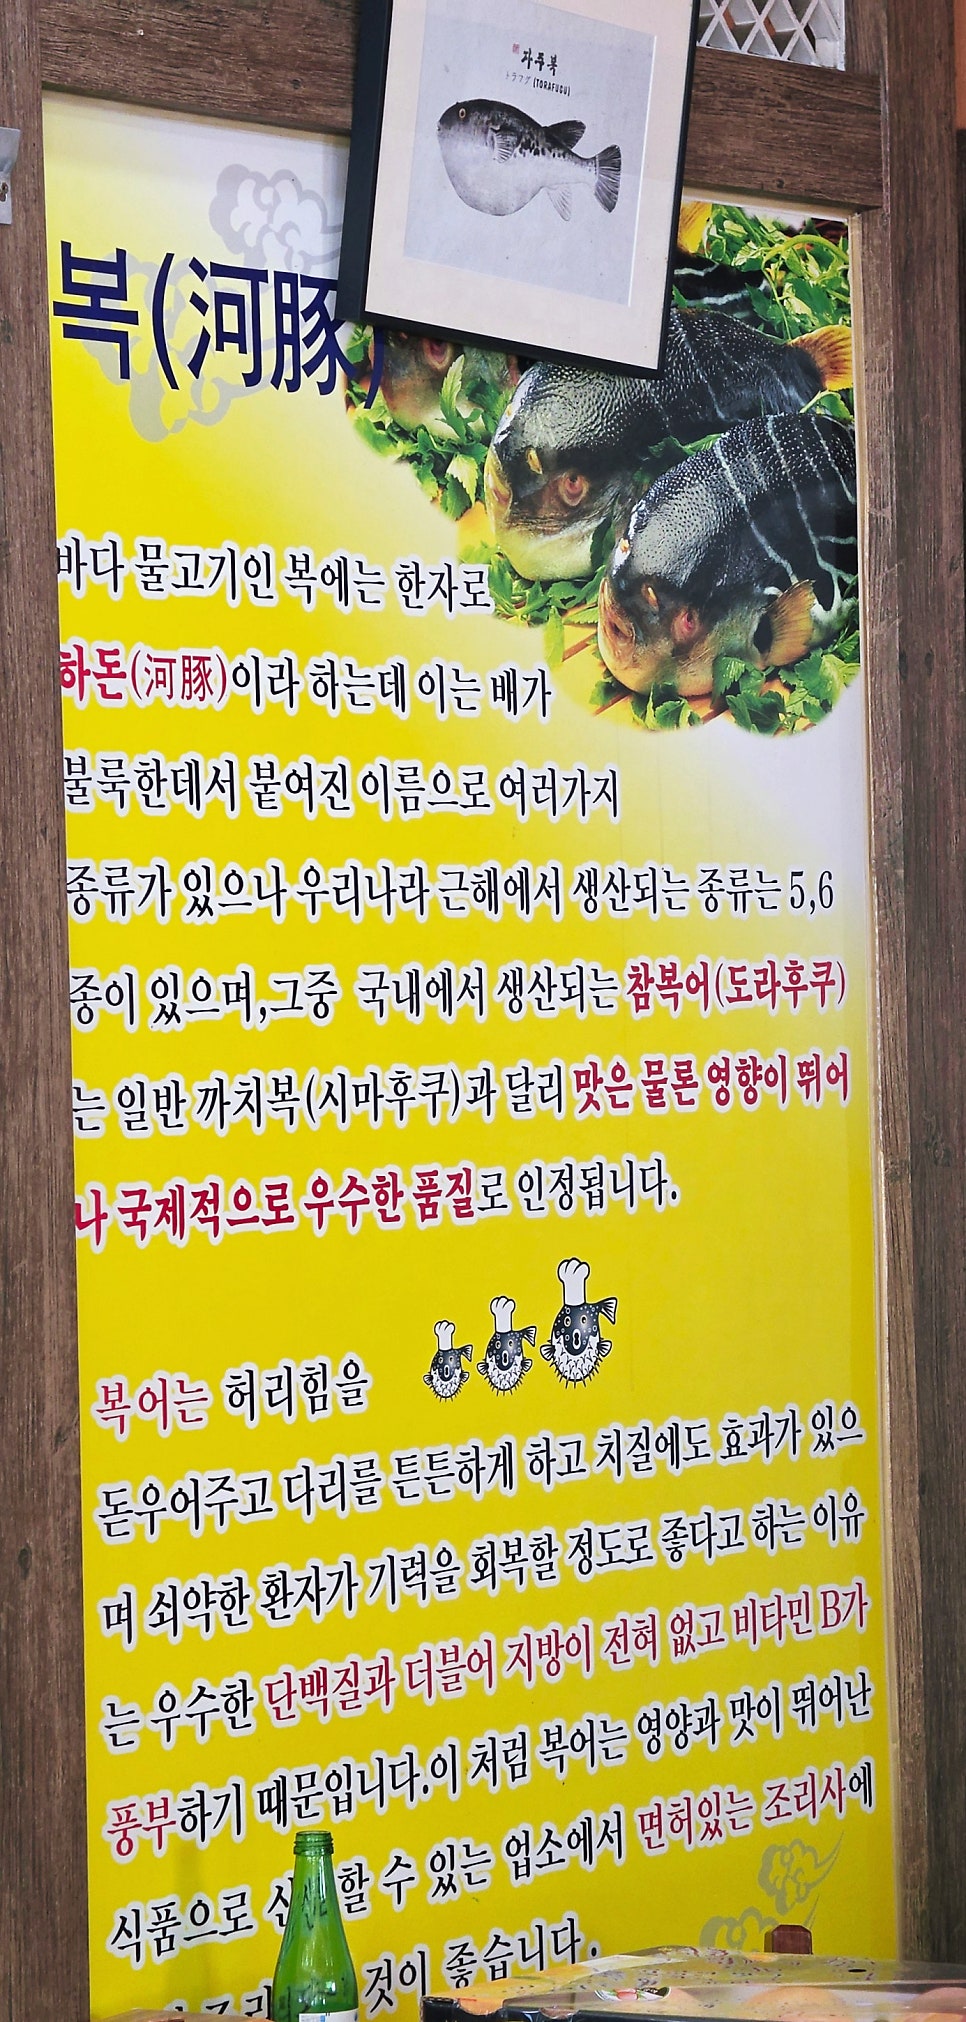 자주복
トラフグ (TORAFUGU)
복(河豚)
바다 물고기인 복에는 한자로
하돈(河豚)이라 하는데 이는 배가
불룩한데서 붙여진 이름으로 여러가지
종류가 있으나 우리나라 근해에서 생산되는 종류는 5,6
종이 있으며,그중 국내에서 생산되는 참복어(도라후쿠)
는 일반 까치복(시마후쿠)과 달리 맛은 물론 영향이 뛰어
나 국제적으로 우수한 품질로 인정됩니다.
복어는 허리힘을
돋우어주고 다리를 튼튼하게 하고 치질에도 효과가 있으
며 쇠약한 환자가 기력을 회복할 정도로 좋다고 하는 이유
는 우수한 단백질과 더블어 지방이 전혀 없고 비타민 B가
풍부하기 때문입니다.이 처럼 복어는 영양과 맛이 뛰어난
식품으로 할 수 있는 업소에서 면허있는 조리사에
것이 좋습니다.